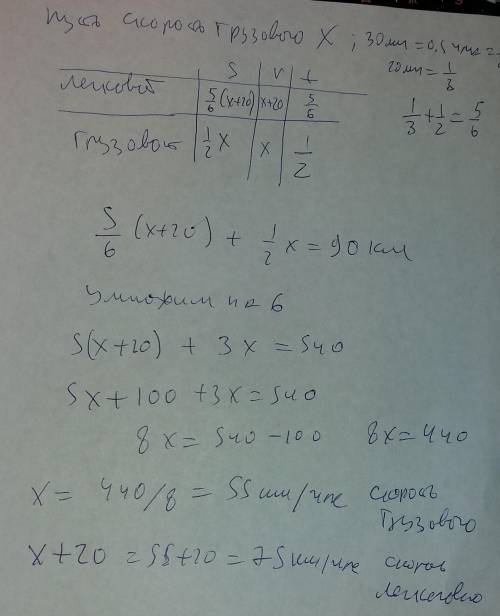 Пусть скорость грузового X ; 30 мин = 0,5 часа =
20 мин = 1/3
S V t
легковой 5/6 (x+20) x+20 5/6
1/3 + 1/2 = 5/6
грузовой 1/2 x x 1/2
5/6 (x+20) + 1/2 x = 90 км
умножим на 6
5(x+20) + 3x = 540
5x + 100 + 3x = 540
8x = 540 - 100 8x = 440
X = 440/8 = 55 км/час скорость
грузового
x+20 = 55+20 = 75 км/час скорость
легкового